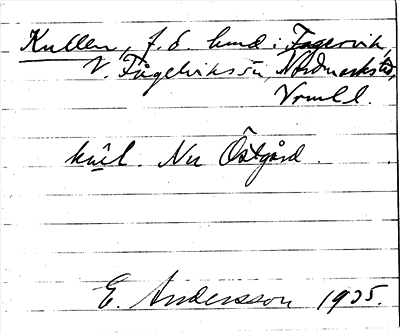 Kullen, f. d. lund i Fagervik,
V. Fågelviks sn, Nordmarks hd,
Vrml l.
kul̂l. Nu Östgård.
E. Andersson 1935.